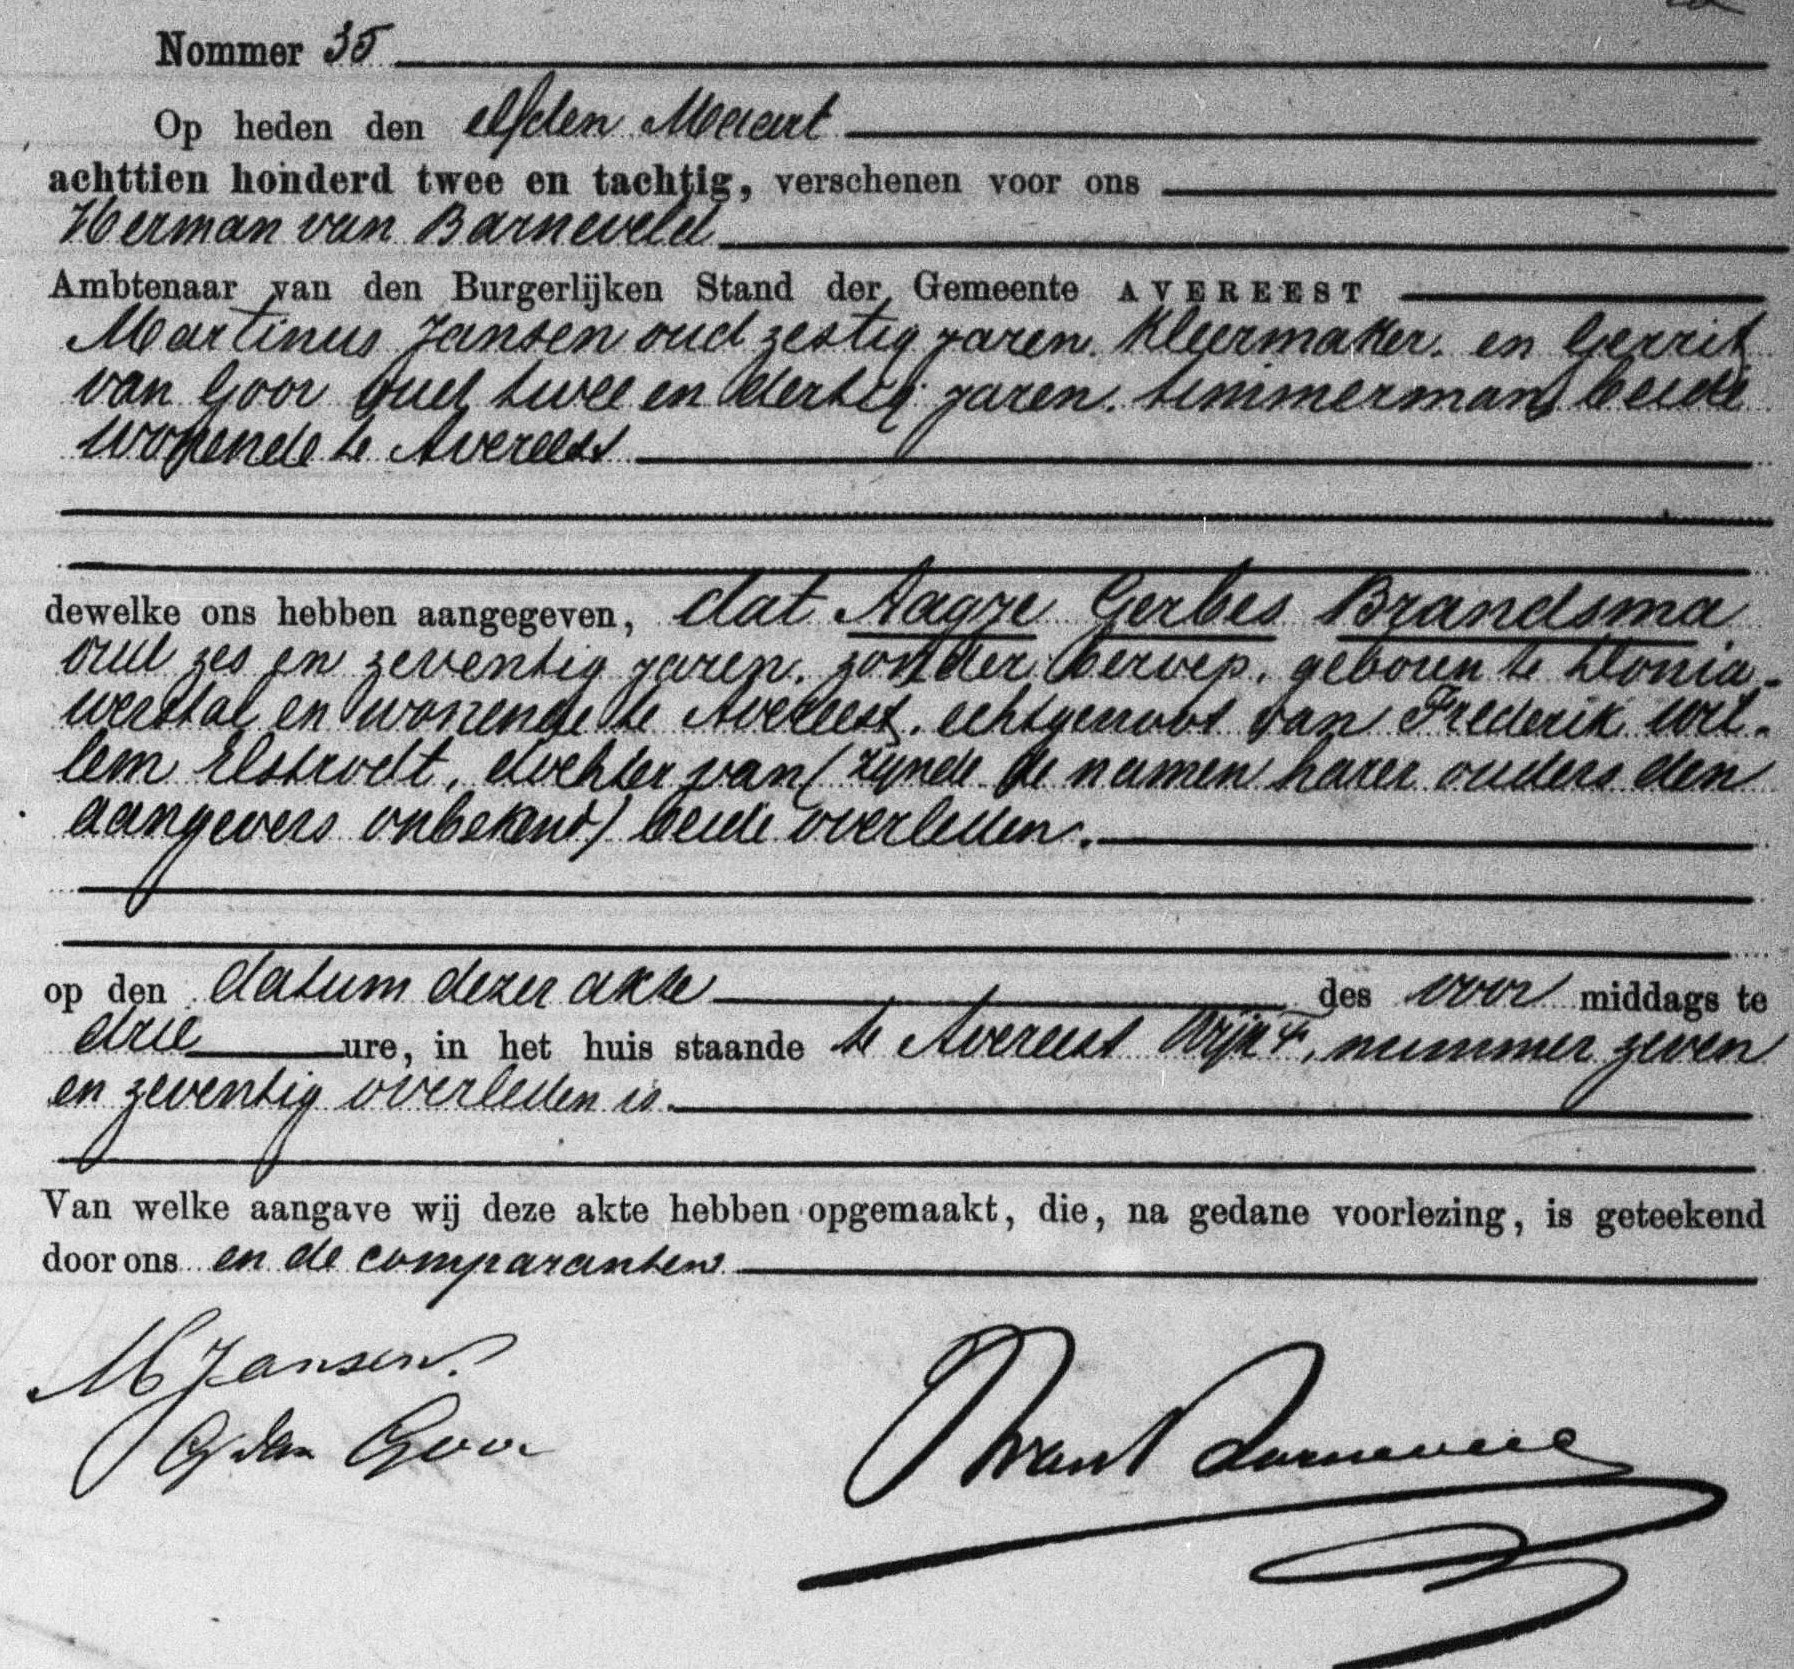 Nommer 35
Op heden den elfden Maart
achttien honderd twee en tachtig, verschenen voor ons
Herman van Barneveld
Ambtenaar van den Burgerlijken Stand der Gemeente AVEREEST
Martinus Jansen oud zestig jaren. kleermaker. en Gerrit
van Goor oud twee en dertig jaren. timmerman, beide
wonende te Avereest
dewelke ons hebben aangegeven, dat Aagje Gerbes Brandsma
oud zes en zeventig jaren. zonder beroep. geboren te Donia-
werstal en wonende te Avereest. echtgenoot van Frederik Wil-
lem Elstrodt, dochter van (zijnde de namen harer ouders den
aangevers onbekend) beide overleden.
op den datum dezer akte des voor middags te
drie ure, in het huis staande te Avereest Wijk F, nummer zeven
en zeventig overleden is.
Van welke aangave wij deze akte hebben opgemaakt, die, na gedane voorlezing, is geteekend
door ons en de comparanten
M Jansen.
G van Goor